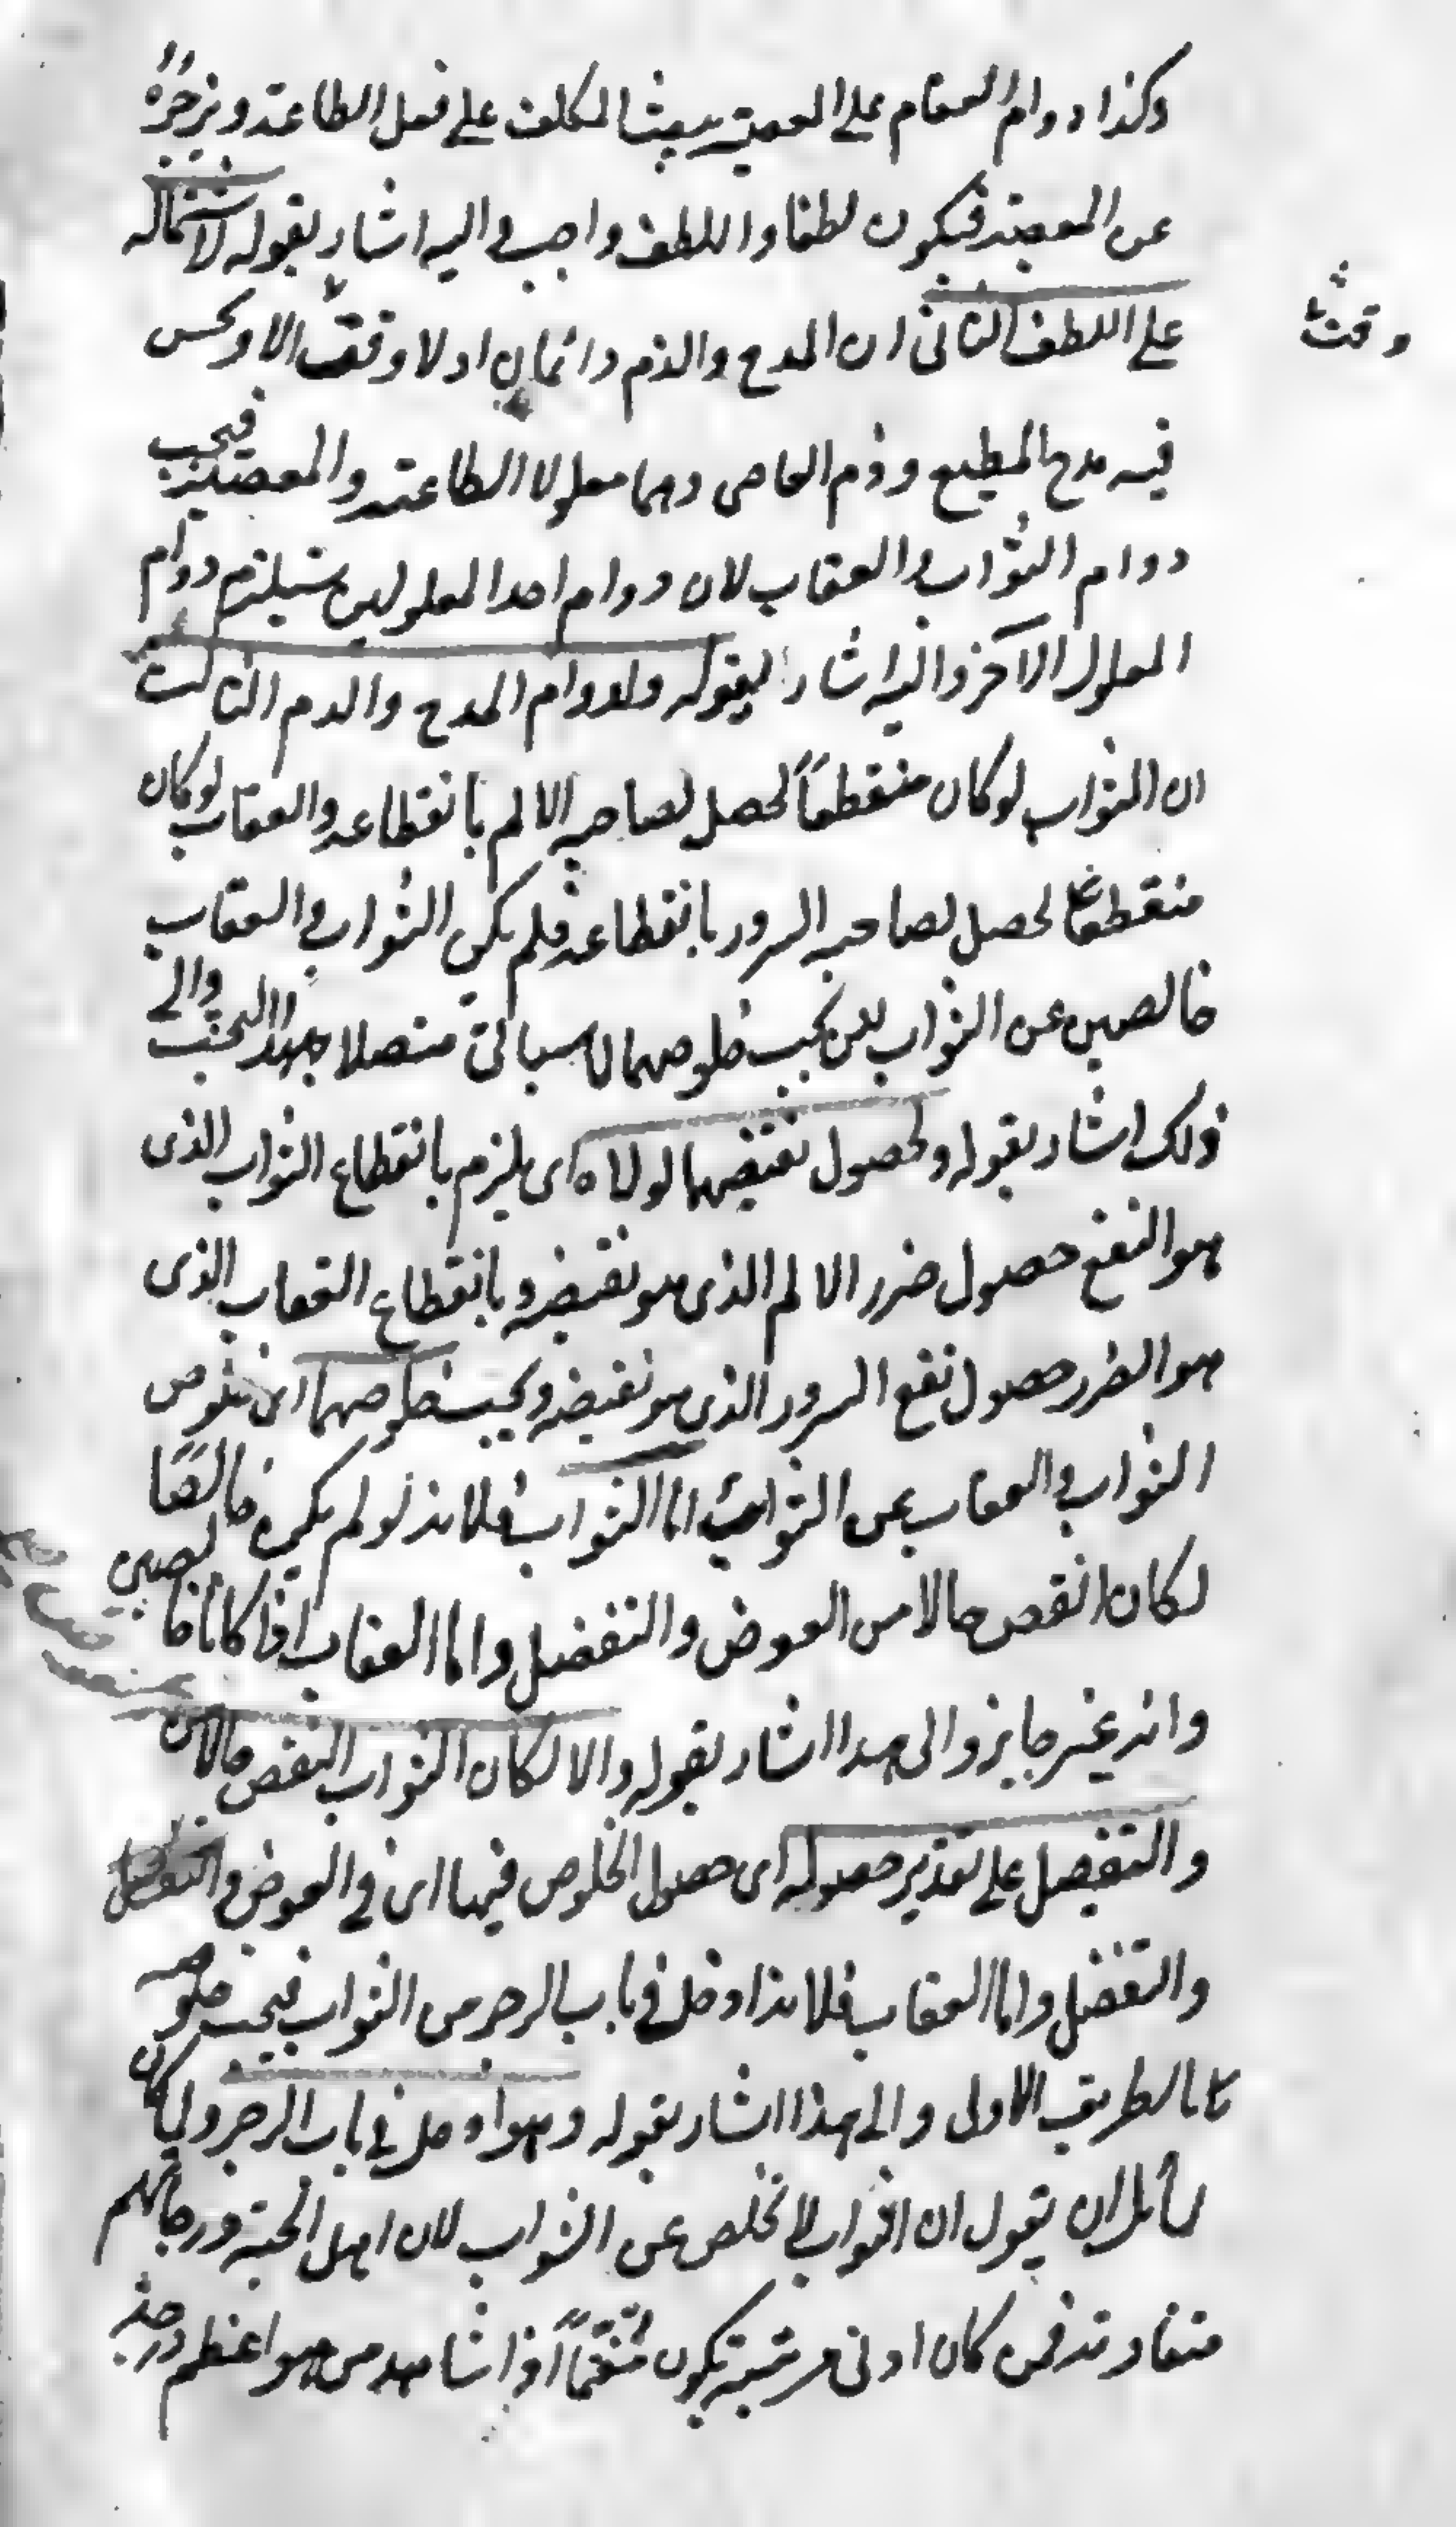 وكذا دوام العقاب على المعصية يبعث المكلف على فعل الطاعة ويزجره
عن المعصية فيكون لطفا واللطف واجب واليه اشار بقوله لاشتماله
على اللطف الثانى ان المدح والذم دائمان اذ لا وقت الا ويحسن
وقت
فيه مدح المطيع وذم العاصى وهما معلولا الطاعة والمعصية فيجب
دوام الثواب والعقاب لان دوام احد المعلولين يستلزم دوام
المعلول الآخر واليه اشار بقوله ولدوام المدح والذم الثالث
ان الثواب لو كان منقطعاً لحصل لصاحبه الالم بانقطاعه والعقاب لو كان
منقطعا لحصل لصاحبه السرور بانقطاعه فلم يكن الثواب والعقاب
خالصين عن الشوائب لكن يجب خلوصهما لما سيأتى متصلا بهذا البحث والى
ذلك اشار بقوله ولحصول نقيضهما لولاه اى يلزم بانقطاع الثواب الذى
هو النفع حصول ضرر الالم الذى هو نقيضه وبانقطاع العقاب الذى
هو الضرر حصول نفع السرور الذى هو نقيضه ويجب خلوصهما اى خلوص
الثواب والعقاب عن الشوائب اما الثواب فلانه لو لم يكن خالصًا
لكان انقص حالا من العوض والتفضل واما العقاب اذا كانا خالصين
وانه غير جايز والى هذا اشار بقوله والا لكان الثواب انقص حالا من
والتفضل على تقدير حصوله اى حصول الخلوص فيهما اى في العوض و
والتفضل واما العقاب فلانه ادخل فى باب الزجر من الثواب فيجب خلوصه
بالطريق الاولى والى هذا اشار بقوله وهو ادخل فى باب الزجر ولما كان
لقائل ان يقول ان الثواب لا يخلص عن الشوائب لان اهل الجنة درجاتهم
متفاوتة فمن كان ادنى مرتبة يكون مغتمّاً اذا شاهد من هو اعظم درجة